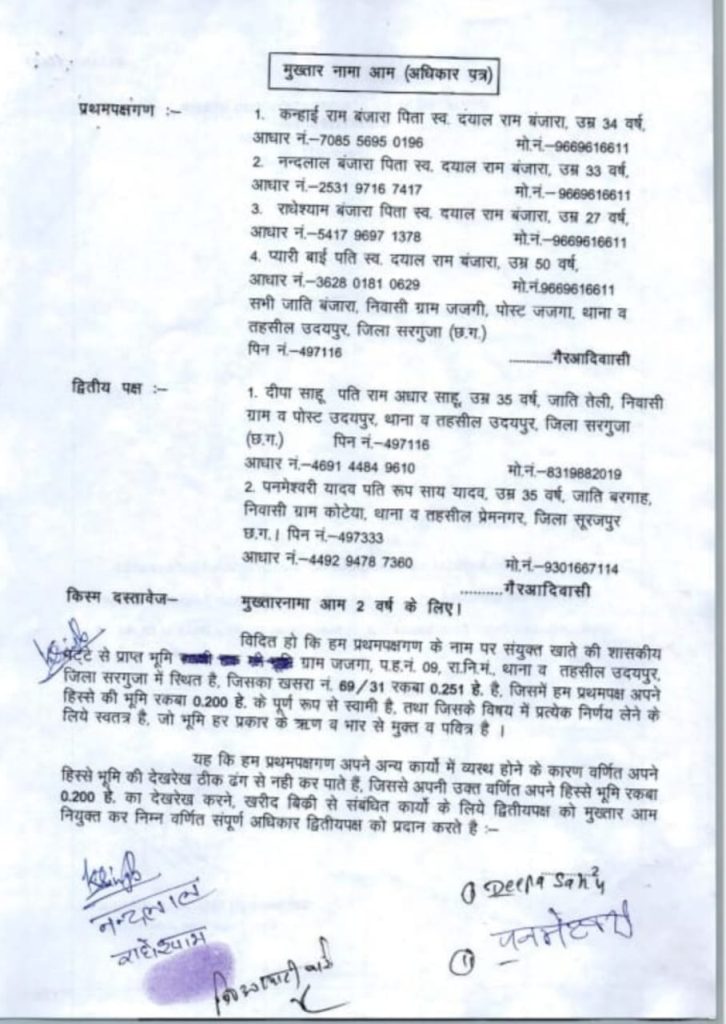 मुख्तार नामा आम (अधिकार पत्र)
प्रथमपक्षगण :–
1. कन्हाई राम बंजारा पिता स्व. दयाल राम बंजारा, उम्र 34 वर्ष,
आधार नं.–7085 5695 0196 मो.नं.–9669616611
2. नन्दलाल बंजारा पिता स्व. दयाल राम बंजारा, उम्र 33 वर्ष,
आधार नं.–2531 9716 7417 मो.नं.– 9669616611
3. राधेश्याम बंजारा पिता स्व. दयाल राम बंजारा, उम्र 27 वर्ष,
आधार नं.–5417 9697 1378 मो.नं.–9669616611
4. प्यारी बाई पति स्व. दयाल राम बंजारा, उम्र 50 वर्ष,
आधार नं.–3628 0181 0629 मो.नं.9669616611
सभी जाति बंजारा, निवासी ग्राम जजगी, पोस्ट जजगा, थाना व
तहसील उदयपुर, जिला सरगुजा (छ.ग.)
पिन नं.–497116 ............गैरआदिवाासी
द्वितीय पक्ष :–
1. दीपा साहू पति राम अधार साहू, उम्र 35 वर्ष, जाति तेली, निवासी
ग्राम व पोस्ट उदयपुर, थाना व तहसील उदयपुर, जिला सरगुजा
(छ.ग.) पिन नं.–497116
आधार नं.–4691 4484 9610 मो.नं.–8319882019
2. पनमेश्वरी यादव पति रूप साय यादव, उम्र 35 वर्ष, जाति बरगाह,
निवासी ग्राम कोटेया, थाना व तहसील प्रेमनगर, जिला सूरजपुर
छ.ग.। पिन नं.–497333
आधार नं.–4492 9478 7360 मो.नं.–9301667114
..........गैरआदिवासी
किस्म दस्तावेज– मुख्तारनामा आम 2 वर्ष के लिए।
विदित हो कि हम प्रथमपक्षगण के नाम पर संयुक्त खाते की शासकीय
पट्टे से प्राप्त भूमि ग्राम जजगा, प.ह.नं. 09, रा.नि.मं., थाना व तहसील उदयपुर,
जिला सरगुजा में स्थित है, जिसका खसरा नं. 69/31 रकबा 0.251 हे. है, जिसमें हम प्रथमपक्ष अपने
हिस्से की भूमि रकबा 0.200 हे. के पूर्ण रूप से स्वामी है, तथा जिसके विषय में प्रत्येक निर्णय लेने के
लिये स्वतत्र है, जो भूमि हर प्रकार के ऋण व भार से मुक्त व पवित्र है ।
यह कि हम प्रथमपक्षगण अपने अन्य कार्यो में व्यस्थ होने के कारण वर्णित अपने
हिस्से भूमि की देखरेख ठीक ढंग से नही कर पाते हैं, जिससे अपनी उक्त वर्णित अपने हिस्से भूमि रकबा
0.200 हे. का देखरेख करने, खरीद बिक्री से संबधित कार्यो के लिये द्वितीयपक्ष को मुख्तार आम
नियुक्त कर निम्न वर्णित संपूर्ण अधिकार द्वितीयपक्ष को प्रदान करते है :–
नन्दलाल
राधेश्याम
Deepa Sahu